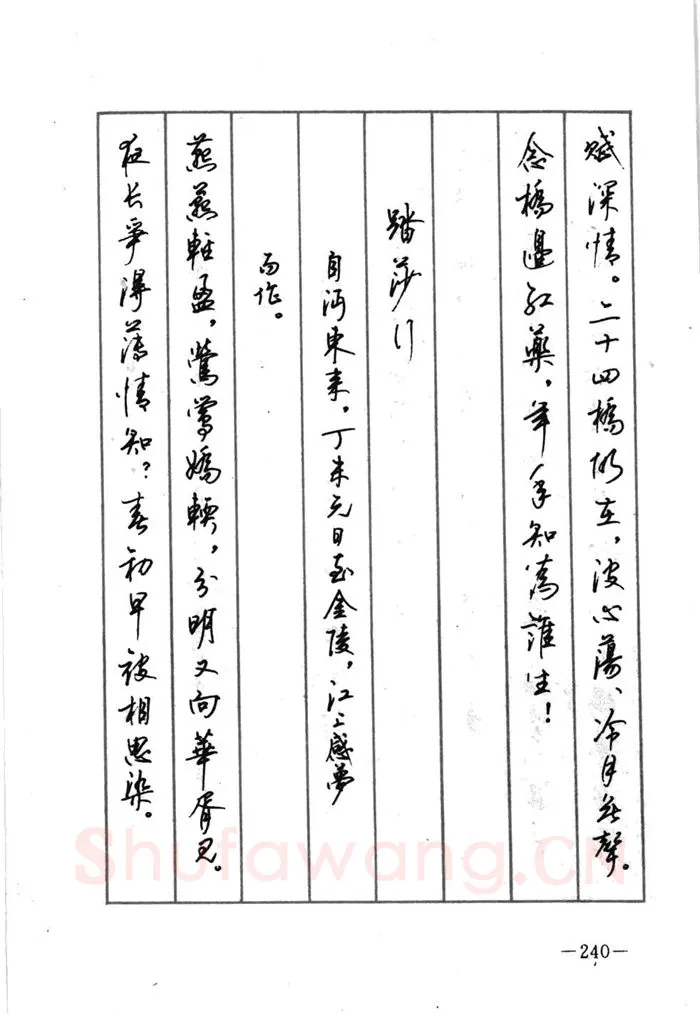 赋深情。二十四橋仍在，波心蕩、冷月無聲。
念橋邊紅藥，年年知為誰生！
踏莎行
自沔東來，丁未元日至金陵，江上感夢
而作。
燕燕輕盈，鶯鶯嬌軟，分明又向華胥見。
夜长爭得薄情知？春初早被相思染。
Shufawang.CN
—240—